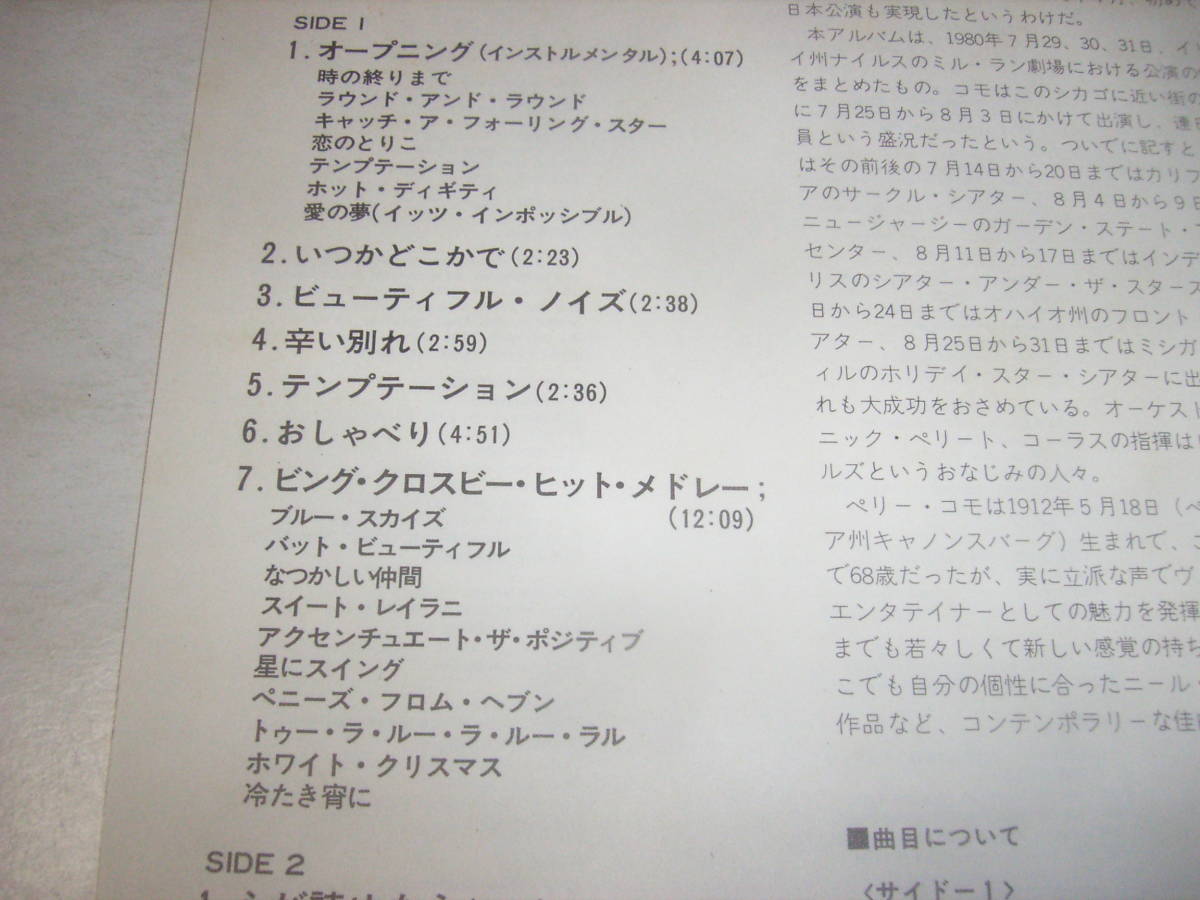 SIDE 1
1. オープニング(インストルメンタル);(4:07)
時の終りまで
ラウンド・アンド・ラウンド
キャッチ・ア・フォーリング・スター
恋のとりこ
テンプテーション
ホット・ディギティ
愛の夢(イッツ・インポッシブル)
2. いつかどこかで(2:23)
3. ビューティフル・ノイズ(2:38)
4. 辛い別れ(2:59)
5. テンプテーション(2:36)
6. おしゃべり(4:51)
7. ビング・クロスビー・ヒット・メドレー;
(12:09)
ブルー・スカイズ
バット・ビューティフル
なつかしい仲間
スイート・レイラニ
アクセンチュエート・ザ・ポジティブ
星にスイング
ペニーズ・フロム・ヘブン
トゥー・ラ・ルー・ラ・ルー・ラル
ホワイト・クリスマス
冷たき宵に
SIDE 2
日本公演も実現したというわけだ。
本アルバムは、1980年7月29、30、31日、イ
イ州ナイルスのミル・ラン劇場における公演の
をまとめたもの。コモはこのシカゴに近い街の
に7月25日から8月3日にかけて出演し、連日
員という盛況だったという。ついでに記すと
はその前後の7月14日から20日まではカリフ
アのサークル・シアター、8月4日から9日
ニュージャージーのガーデン・ステート・
センター、8月11日から17日まではインデ
リスのシアター・アンダー・ザ・スターズ
日から24日まではオハイオ州のフロント
アター、8月25日から31日まではミシガ
ィルのホリデイ・スター・シアターに出
れも大成功をおさめている。オーケスト
ニック・ペリート、コーラスの指揮は
ルズというおなじみの人々。
ペリー・コモは1912年5月18日(ペ
ア州キャノンスバーグ)生まれで、こ
で68歳だったが、実に立派な声でヴ
エンタテイナーとしての魅力を発揮
までも若々しくて新しい感覚の持ち
こでも自分の個性に合ったニール・
作品など、コンテンポラリーな佳
■曲目について
〈サイドー1〉